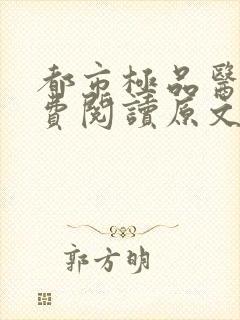 都市極品醫
費閱讀原文
郭方明